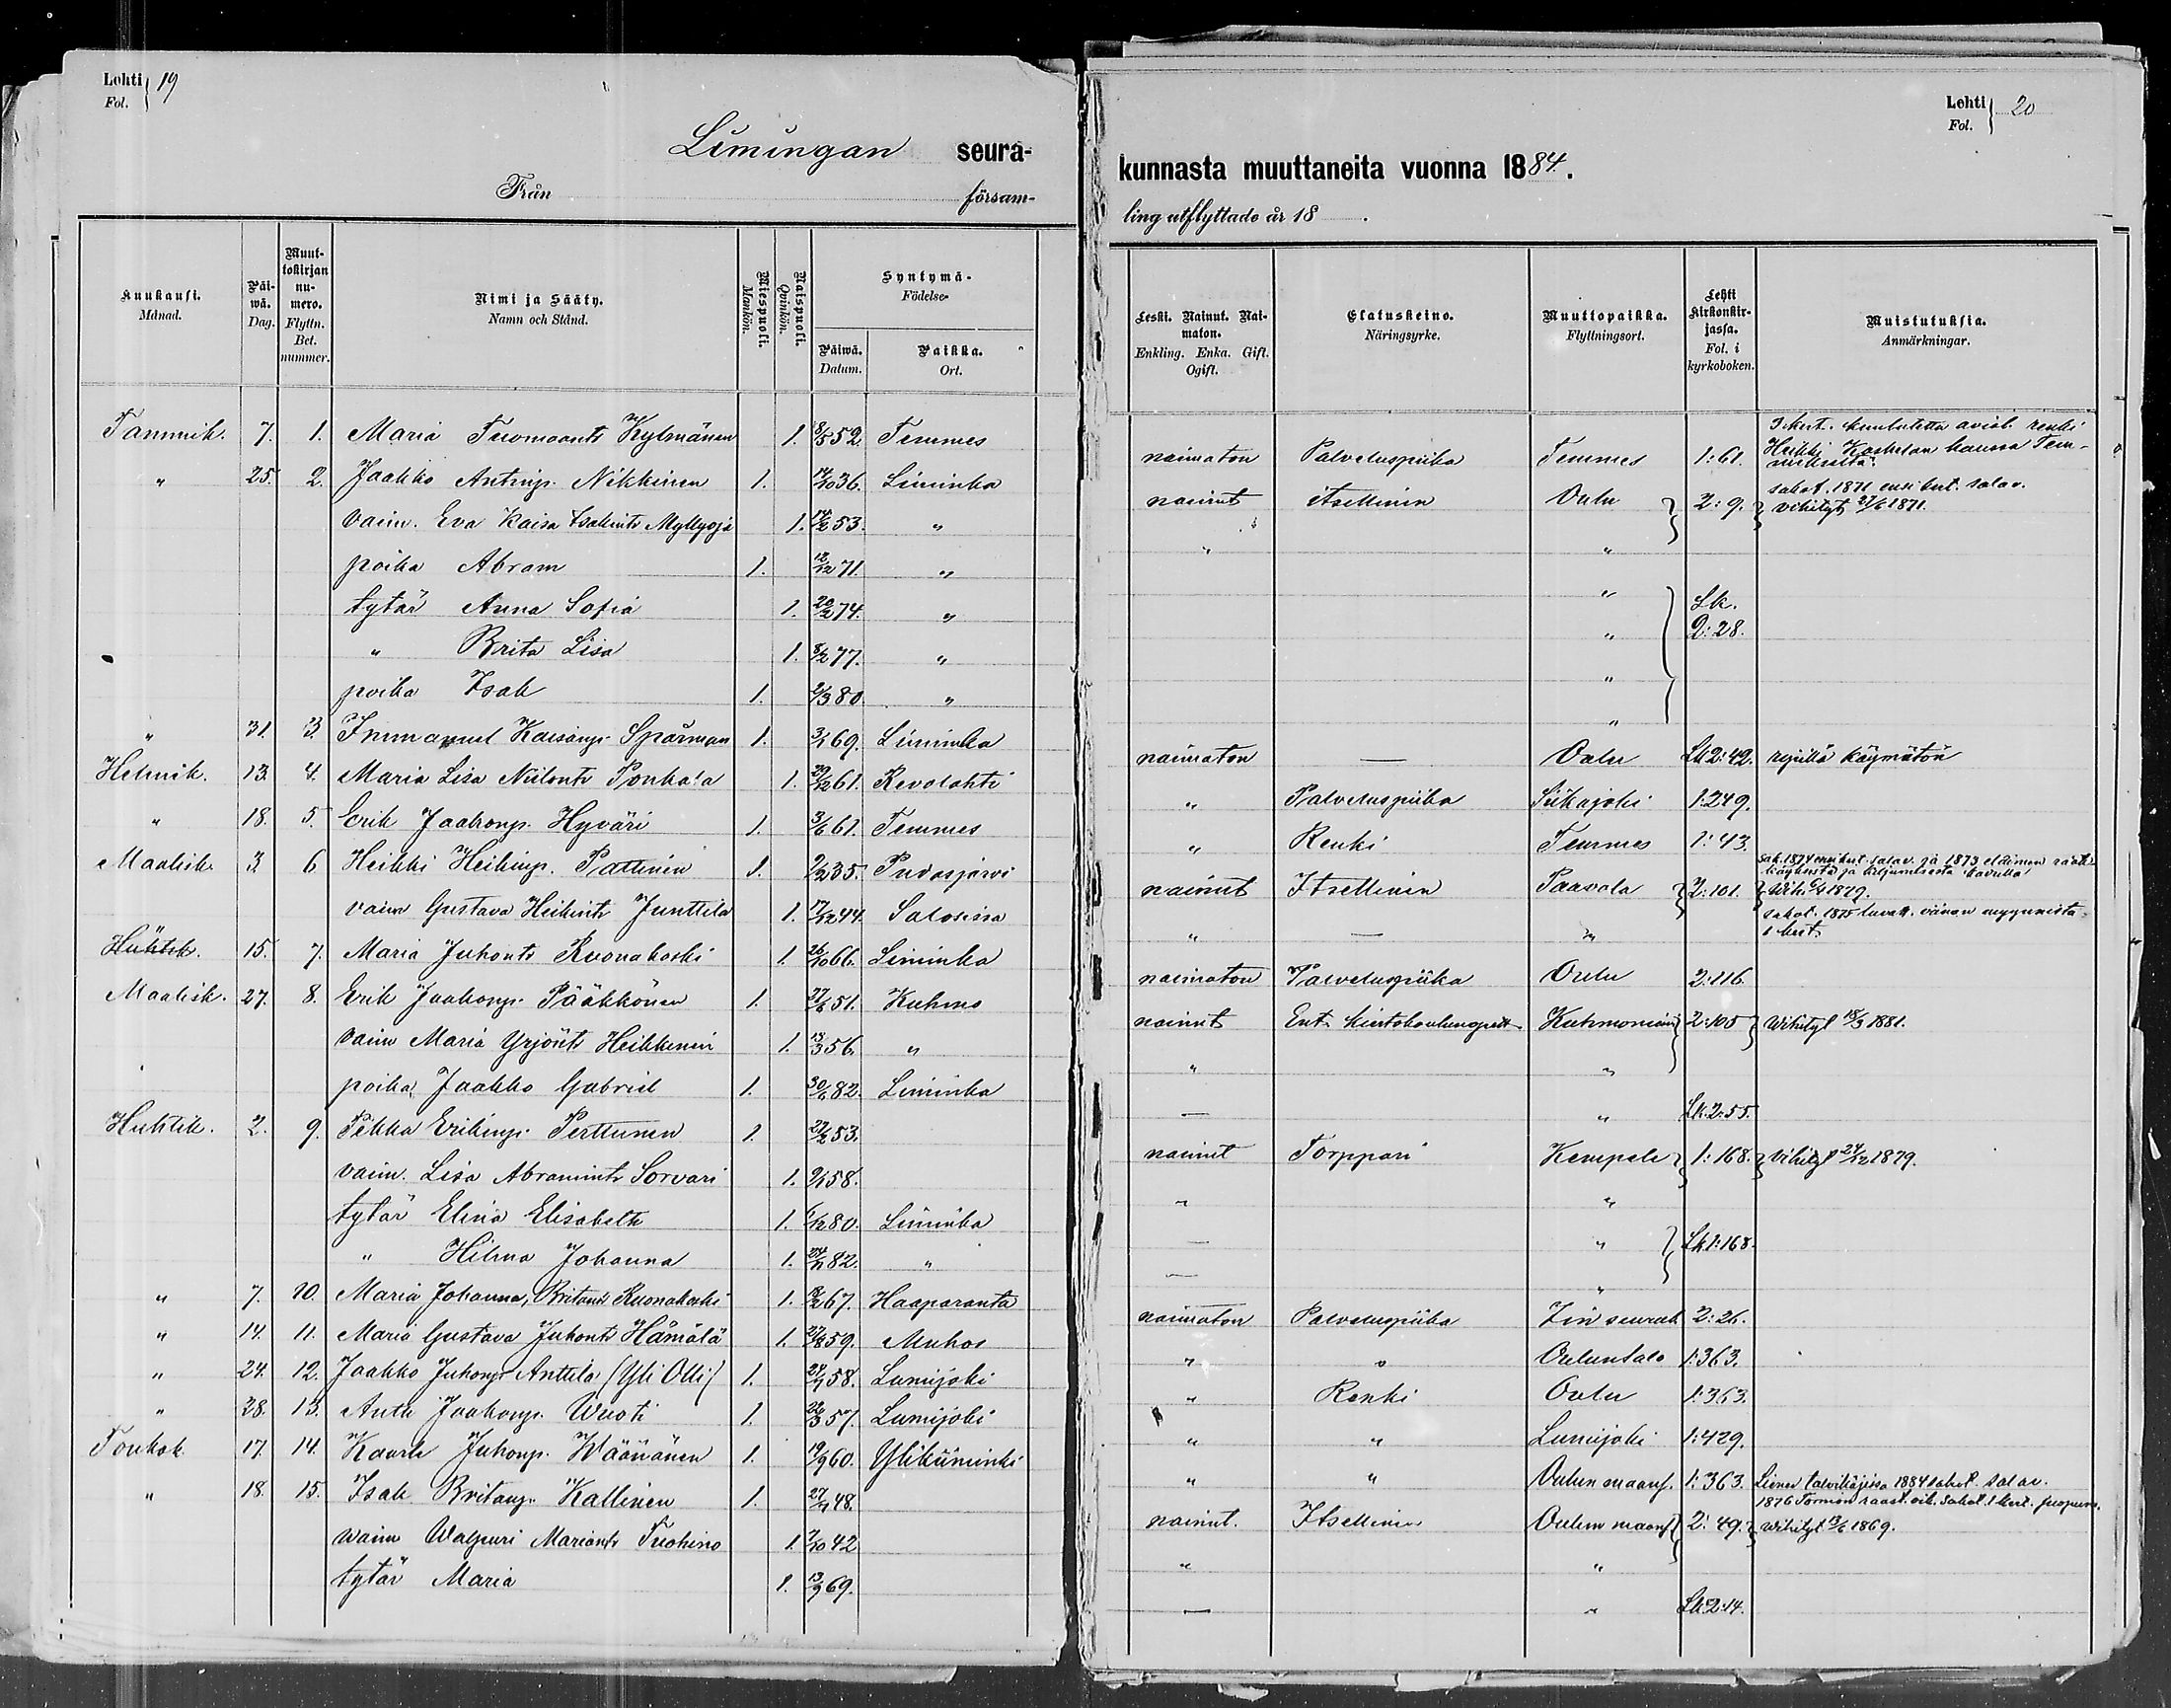 Lehti 19
Fol.
Limingan seura-
Från försam-
Kuukausi. Månad.
Päi-wä. Dag.
Muut-tokirjan nu-mero. Flyttn. Bet. nummer.
Nimi ja Sääty. Namn och Stånd.
Miespuoli. Mankön.
Naispuoli. Qvinkön.
Syntymä- Födelse-
Päiwä. Datum.
Paikka. Ort.
Tammik. 7. 1. Maria Tuomaantr Kylmänen 1. 8/5 52 Temmes
" 25. 2. Jaakko Antinp. Nikkinen 1. 36. Liminka
vaim. Eva Kaisa Isakintr Myllyoja 1. 53. "
poika Abram 1. 12/12 71. "
tytär Anna Sofia 1. 20/2 74. "
" Brita Lisa 1. 8/2 77. "
poika Isak 1. 2/3 80. "
" 31. 3. Immanuel Kaisanp. Spårman 1. 69. Liminka
Helmik. 13. 4. Maria Lisa Niilontr Ponkala 1. 29/12 61. Revolahti
" 18. 5. Erik Jaakonp. Hyväri 1. 3/6 61. Temmes
Maalisk. 3. 6 Heikki Heikinp. Pattinen 1. 35. Pudasjärvi
vaim Gustava Heikintr Junttila 1. 17/12 44. Saloisissa
Huhtik. 15. 7. Maria Juhontr Ruonakoski 1. 26/10 66. Liminka
Maalisk. 27. 8. Erik Jaakonp. Pääkkönen 1. 27/6 51. Kuhmo
vaim Maria Yrjöntr Heikkinen 1. 13/3 56. "
poika Jaakko Gabriel 1. 30/6 82. Liminka
Huhtik. 2. 9. Pekka Erikinp. Perttunen 1. 27/2 53.
vaim. Lisa Abramintr Sorvari 1. 58.
tytär Elina Elisabeth 1. 6/12 80. Liminka
" Hilma Johanna 1. 82. "
" 7. 10. Maria Johanna, Britantr Ruonakoski 1. 67. Haaparanta
" 14. 11. Maria Gustava Juhontr Hämälä 1. 27/8 59. Muhos
" 24. 12. Jaakko Juhonp Anttila (Yli Olli) 1. 58. Lumijoki
" 28. 13. Antti Jaakonp. Wuoti 1. 22/3 57. Lumijoki
Toukok 17. 14. Kaarle Juhonp. Wäänänen 1. 19/9 60. Ylikiiminki
" 18. 15. Isak Britanp. Kallinen 1. 48.
waim Walpuri Mariantr Tuohino 1. 7/10 42
tytär Maria 1. 13/9 69.
Lehti 20
Fol.
kunnasta muuttaneita vuonna 1884.
ling utflyttade år 18 .
Leski. Nainut. Nai-maton. Enkling. Enka. Gift. Ogift.
Elatuskeino. Näringsyrke.
Muuttopaikka. Flyttningsort.
Lehti Kirkonkir-jassa. Fol. i kyrkoboken.
Muistutuksia. Anmärkningar.
3 kert. kuulutettu aviol. renki
naimaton Palveluspiika Temmes 1:61. Heikki Koskelan kanssa Tem-
meksellä.
sakot. 1871 ensi kert. salav.
nainut itsellinen Oulu 2:9. vihityt 27/6 1871.
" "
" Lk.
" 2:28.
"
"
naimaton — Oulu Lk 2:42. ripillä käymätön
" Palveluspiika Siikajoki 1:249.
" Renki Temmes 1:43.
sak. 1874 ensi kert. salav. ja 1873
nainut Itsellinen Paavola 2:101. 1879.
" — " sakot. 1875 luvat. viinan myynnistä
1 kert.
naimaton Palveluspiika Oulu 2:116.
nainut Ent. kiertokoulunopett. Kuhmoniemi 2:105 Wihityt 18/3 1881.
" "
— " Lk. 2:55.
nainut Torppari Kempele 1:168. vihityt 27/12 1879.
" "
— " Lk 1:168.
— "
naimaton Palveluspiika Iin seurak 2:26.
" " Oulunsalo 1:363.
" Renki Oulu 1:363.
" " Lumijoki 1:429.
" " Oulun maas. 1:363. talvikäjissä 1884 sakot. salav.
1876 Tornion raast. oik. sakot. 1 kert. juopum.
nainut. Itsellinen Oulun maas 2:49. wihityt 13/6 1869.
" "
— " Lk 2:14.